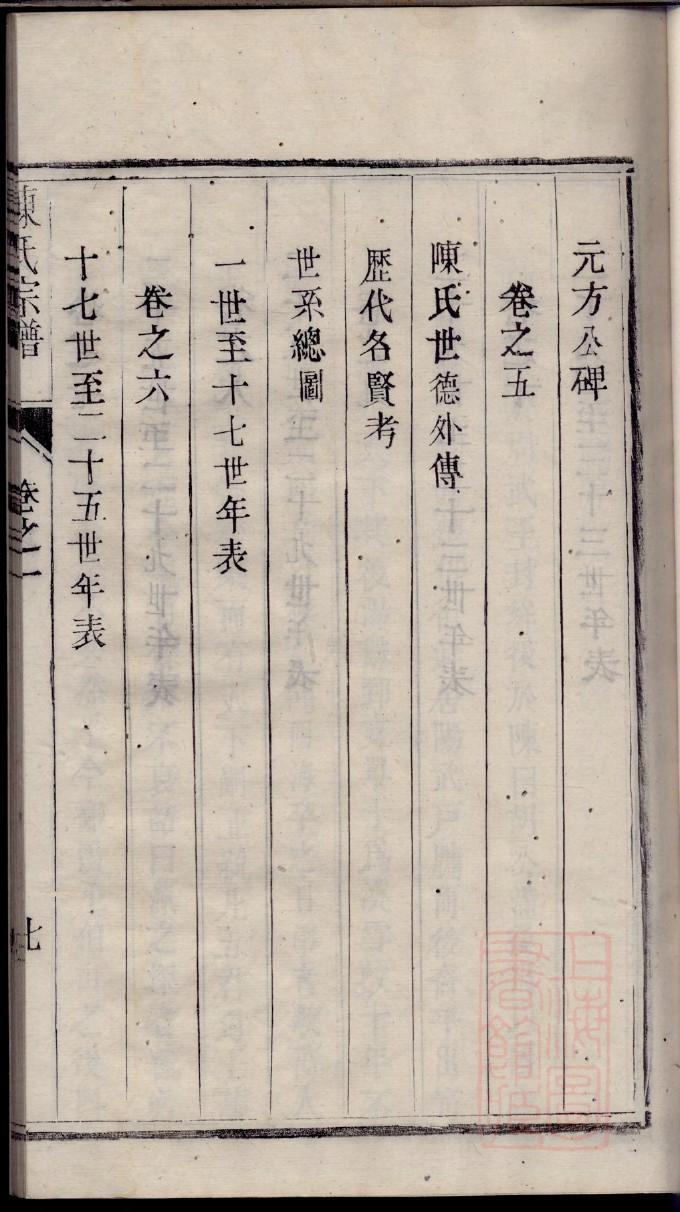 元方公碑
卷之五
陳氏世德外傳
歷代名賢考
世系總圖
一世至十七世年表
卷之六
十七世至二十五世年表
陳氏宗譜
卷之一
七
上海圖書館藏